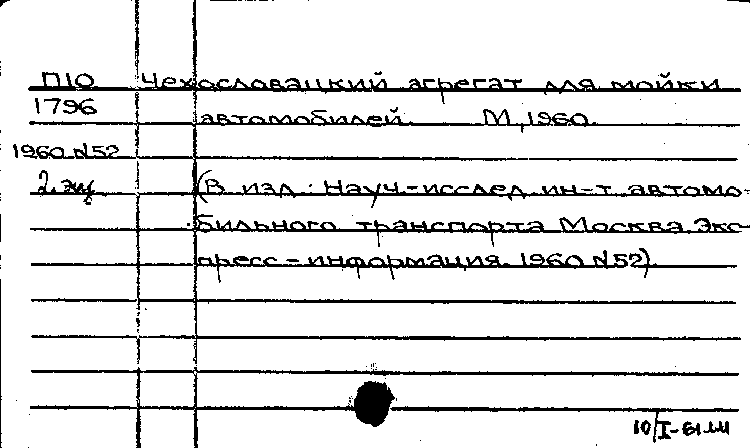 П10 Чехословацкий агрегат для мойки
1796 автомобилей. М, 1960.
1960 №52
2. экз (В изд: Науч.-исслед. ин-т автомо-
бильного транспорта Москва. Экс-
пресс-информация. 1960 №52)
10/I-61